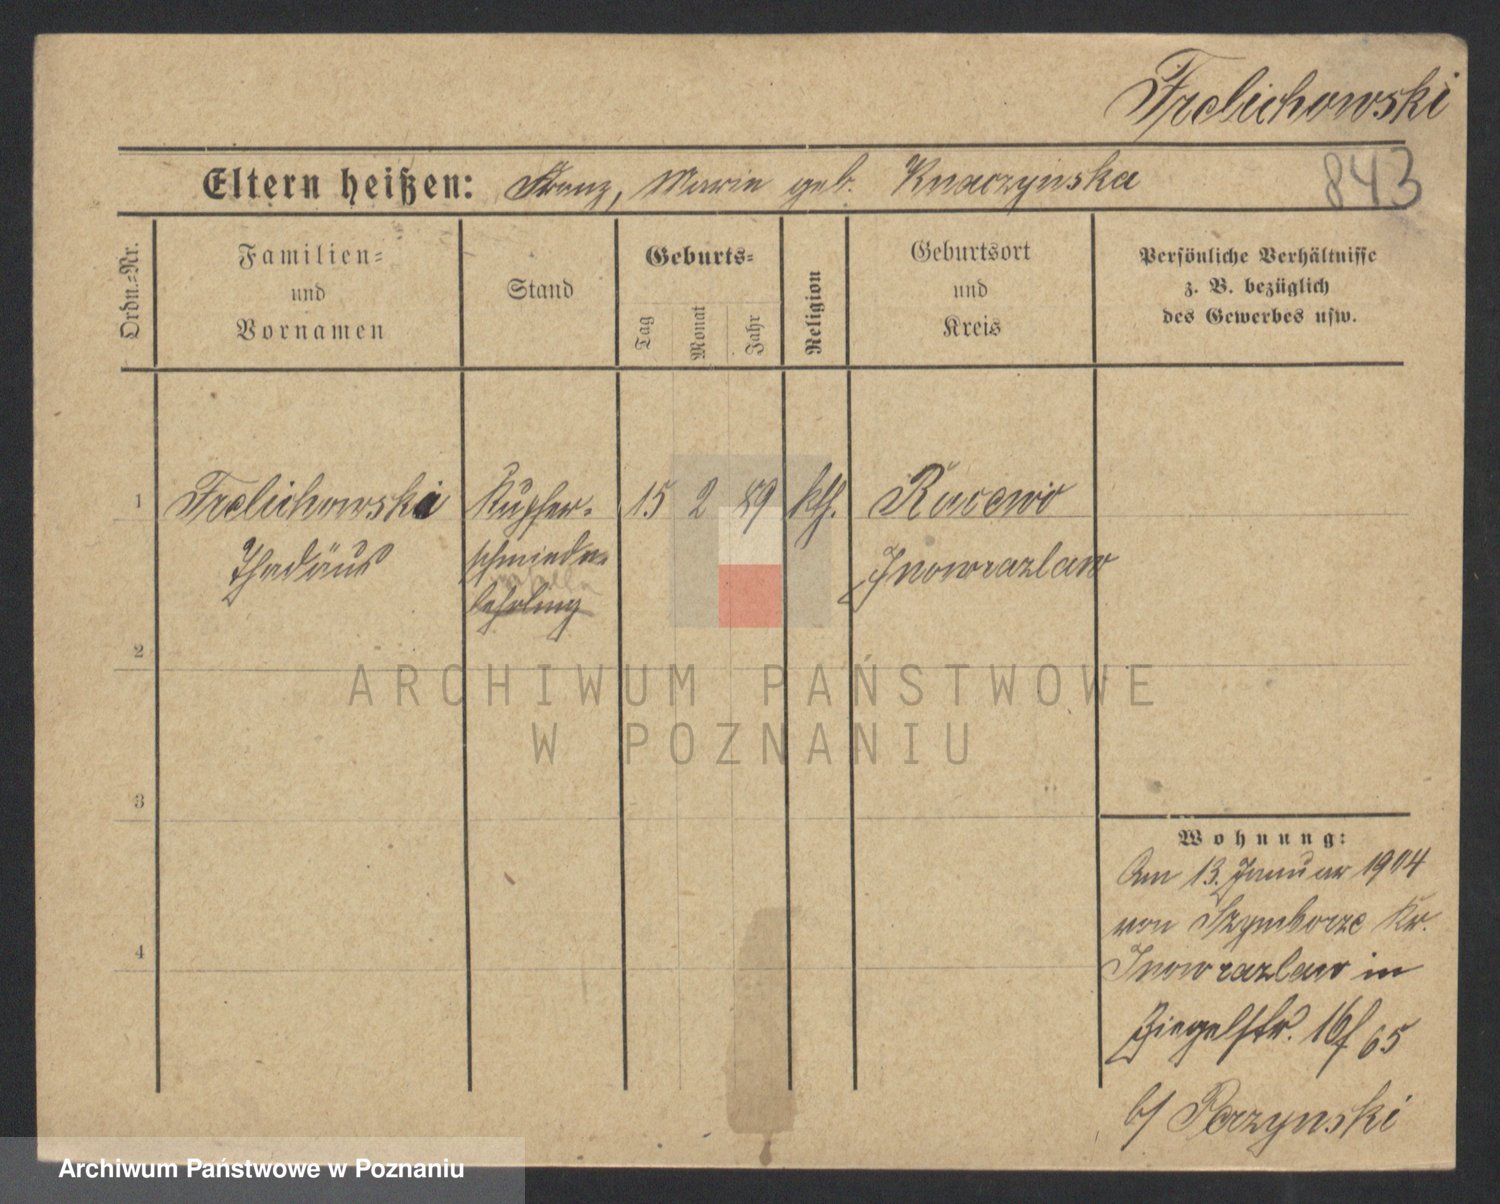 Frelichowski
843
Eltern heißen: Franz, Marie geb. Knaczynska
Ordn.-Nr.
Familien-
und
Vornamen
Stand
Geburts-
Tag
Monat
Jahr
Religion
Geburtsort
und
Kreis
Persönliche Verhältnisse
z. B. bezüglich
des Gewerbes usw.
1 Frelichowski Kupfer- 15 2 89 kth. Racewo
Thadäus schmiede- Inowrazlaw
lehrling
2
ARCHIWUM PAŃSTWOWE
W POZNANIU
3
Wohnung:
Am 13. Januar 1904
von Szymborze Kr.
Inowrazlaw in
Ziegelstr. 16/65
b/ Porzynski
4
Archiwum Państwowe w Poznaniu